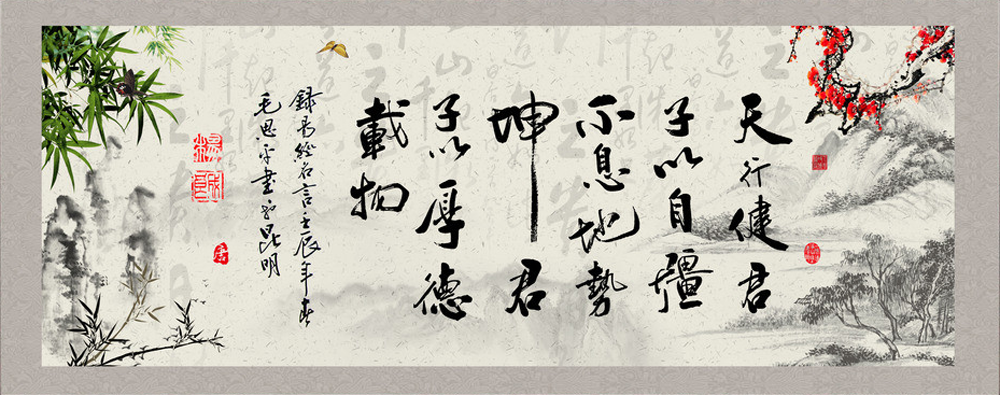 天行健君
子以自彊
不息地勢
坤君
子以厚德
載物
錄易經名言壬辰年春
書於昆明